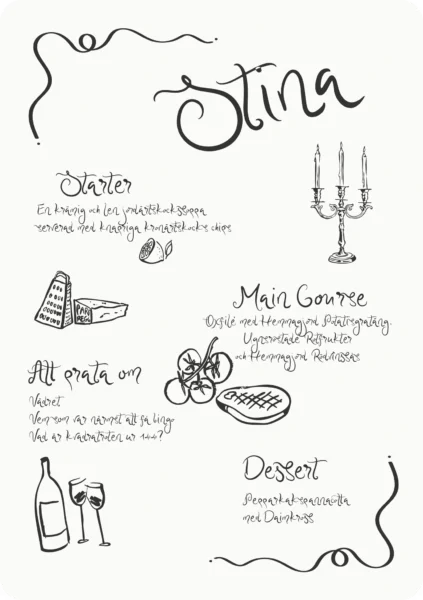 Stina
Starter
En krämig och len jordärtskockssoppa
serverad med knapriga kronärtskocks chips
Main Course
Oxfilé med Hemmagjord Potatisgratäng.
Ugnsrostade Rotfrukter
och Hemmagjord Rödvinssås
Att prata om
Vädret
Vem som var närmst att få bingo
Vad är kvadratroten ur 144?
Dessert
Pepparkakspannacotta
med Daimkross